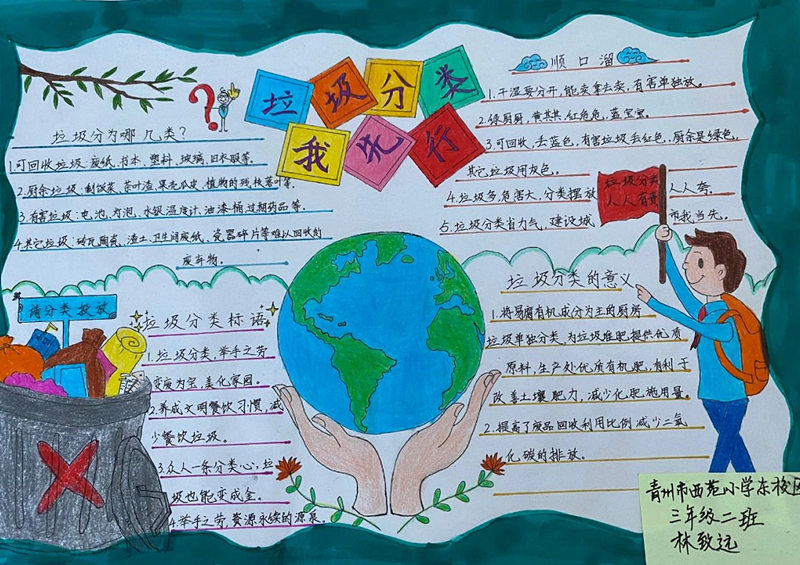 垃圾分类
我先行
垃圾分为哪几类？
1.可回收垃圾:废纸、书本、塑料、玻璃、旧衣服等.
2.厨余垃圾:剩饭菜、茶叶渣、果壳瓜皮、植物的残枝落叶等.
3.有害垃圾:电池、灯泡、水银温度计、油漆桶、过期药品等.
4.其它垃圾:砖瓦陶瓷、渣土、卫生间废纸、瓷器碎片等难以回收的
废弃物.
顺口溜
1.干湿要分开,能卖拿去卖,有害单独放.
2.绿厨厨,黄其其,红危危,蓝宝宝.
3.可回收,去蓝色,有害垃圾去红色,厨余是绿色,
其它垃圾用灰色.
4.垃圾多,危害大,分类摆放人人夸.
5.垃圾分类省力气,建设城市我当先.
垃圾分类
人人有责
请分类投放
垃圾分类标语
1.垃圾分类,举手之劳
变废为宝,美化家园.
2.养成文明餐饮习惯,减
少餐饮垃圾.
3.众人一条分类心,垃
圾也能变成金.
4.举手之劳,资源永续的源泉.
垃圾分类的意义
1.将易腐有机成分为主的厨房
垃圾单独分类,为垃圾堆肥提供优质
原料,生产处优质有机肥,有利于
改善土壤肥力,减少化肥施用量.
2.提高了废品回收利用比例,减少二氧
化碳的排放.
青州市西苑小学东校区
三年级二班
林致远